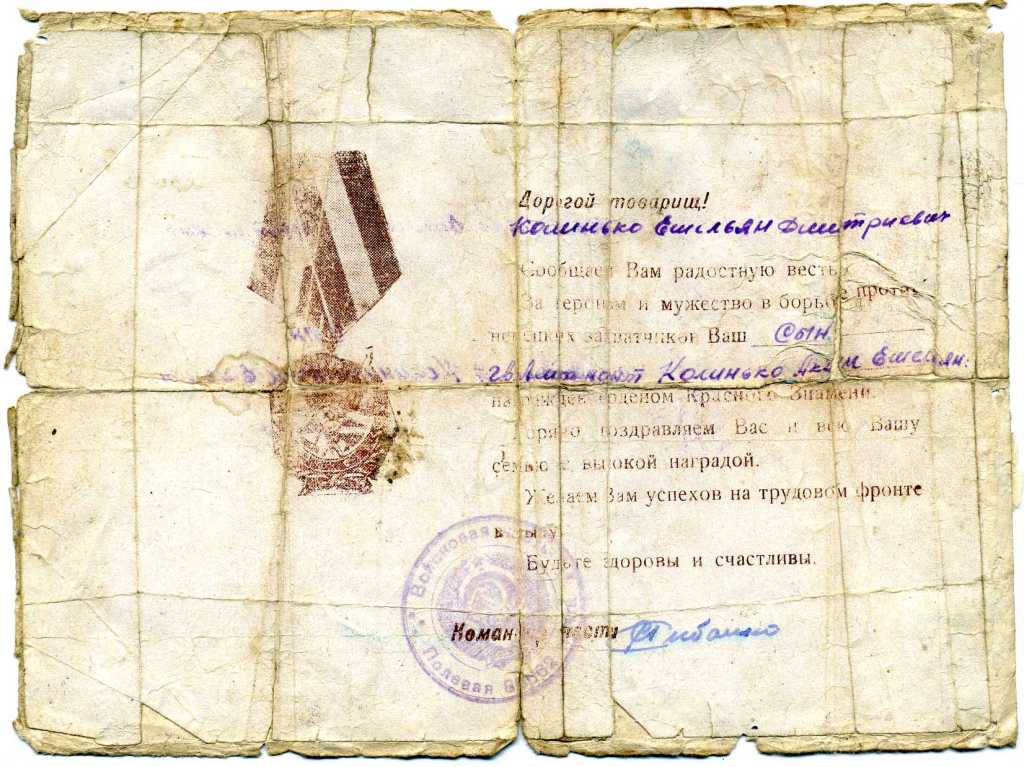 Дорогой товарищ!
Калинько Емельян Дмитриевич
Сообщаем Вам радостную весть
За героизм и мужество в борьбе против
немецких захватчиков Ваш сын
гв. лейтенант Калинько Аким Емельян.
награжден орденом Красного Знамени.
Горячо поздравляем Вас и всю Вашу
семью с высокой наградой.
Желаем Вам успехов на трудовом фронте
в тылу
Будьте здоровы и счастливы.
Командир части
Войсковая
Полевая